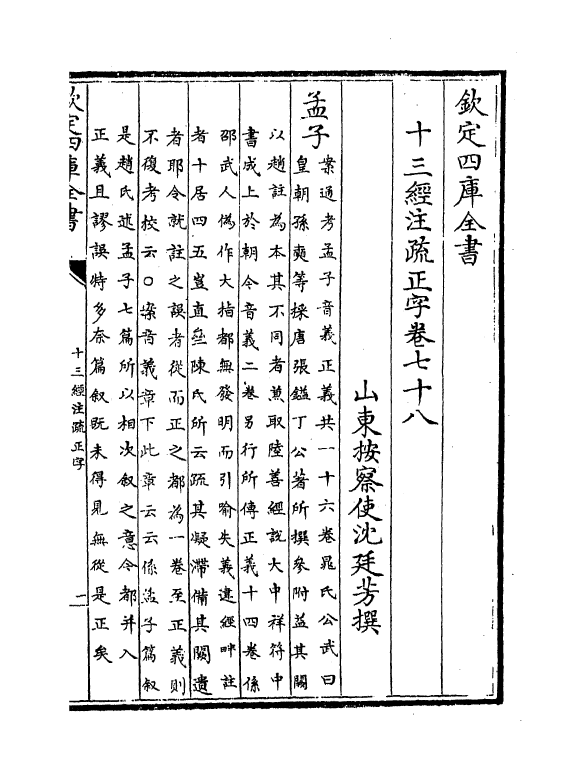 欽定四庫全書
十三經注疏正字卷七十八
山東按察使沈廷芳撰
孟子
案通考孟子音義正義共一十六卷晁氏公武曰
皇朝孫奭等採唐張鎰丁公著所撰參附益其闕
以趙註為本其不同者兼取陸善經說大中祥符中
書成上於朝今音義二卷另行所傳正義十四卷係
邵武人偽作大指都無發明而引喻失義違經畔註
者十居四五豈直如陳氏所云疏其凝滯備其闕遺
者耶今就註之誤者從而正之都為一卷至正義則
不復考校云○案音義章下此章云云係孟子篇叙
是趙氏述孟子七篇所以相次叙之意今都并入
正義且謬誤特多奈篇叙既未得見無從是正矣
欽定四庫全書
十三經注疏正字
一